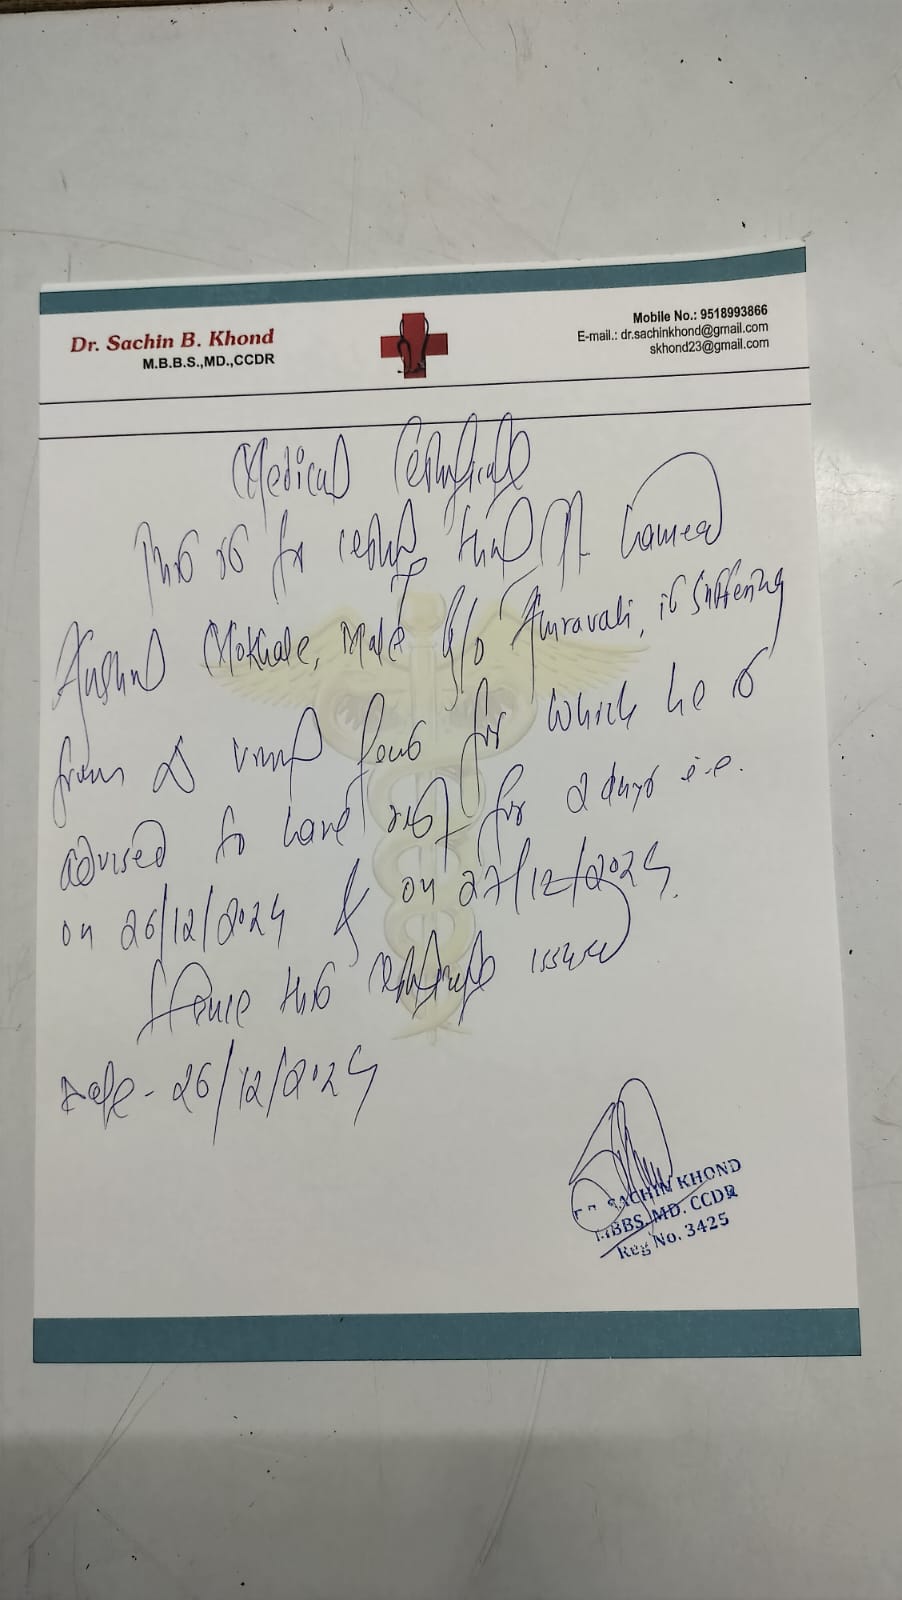 Dr. Sachin B. Khond
M.B.B.S.,MD.,CCDR
Mobile No.: 9518993866
E-mail.: dr.sachinkhond@gmail.com
skhond23@gmail.com
Medical Certificate
This is to certify that Pt named
Mokhale, Male R/o Amravati, is suffering
from viral fever for which he is
advised to have rest for 2 days i.e.
on 26/12/2024 & on 27/12/2024.
Hence this certificate issued
Date - 26/12/2024
SACHIN KHOND
MBBS. MD. CCDR
Reg No. 3425